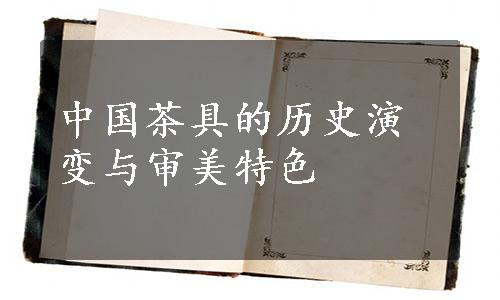 中国茶具的历史演
变与审美特色